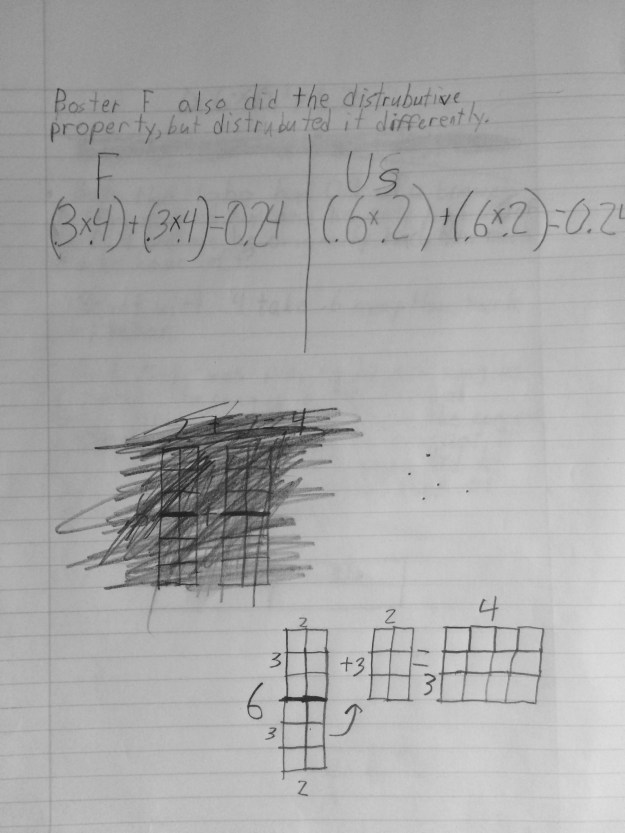 Boster F also did the distrubutive
property, but distrubuted it differently.
F
Us
(.3x.4)+(.3x.4)=0.24
(.6x.2)+(.6x.2)=0.24
4
2
2
4
3
+3
=
3
6
3
2